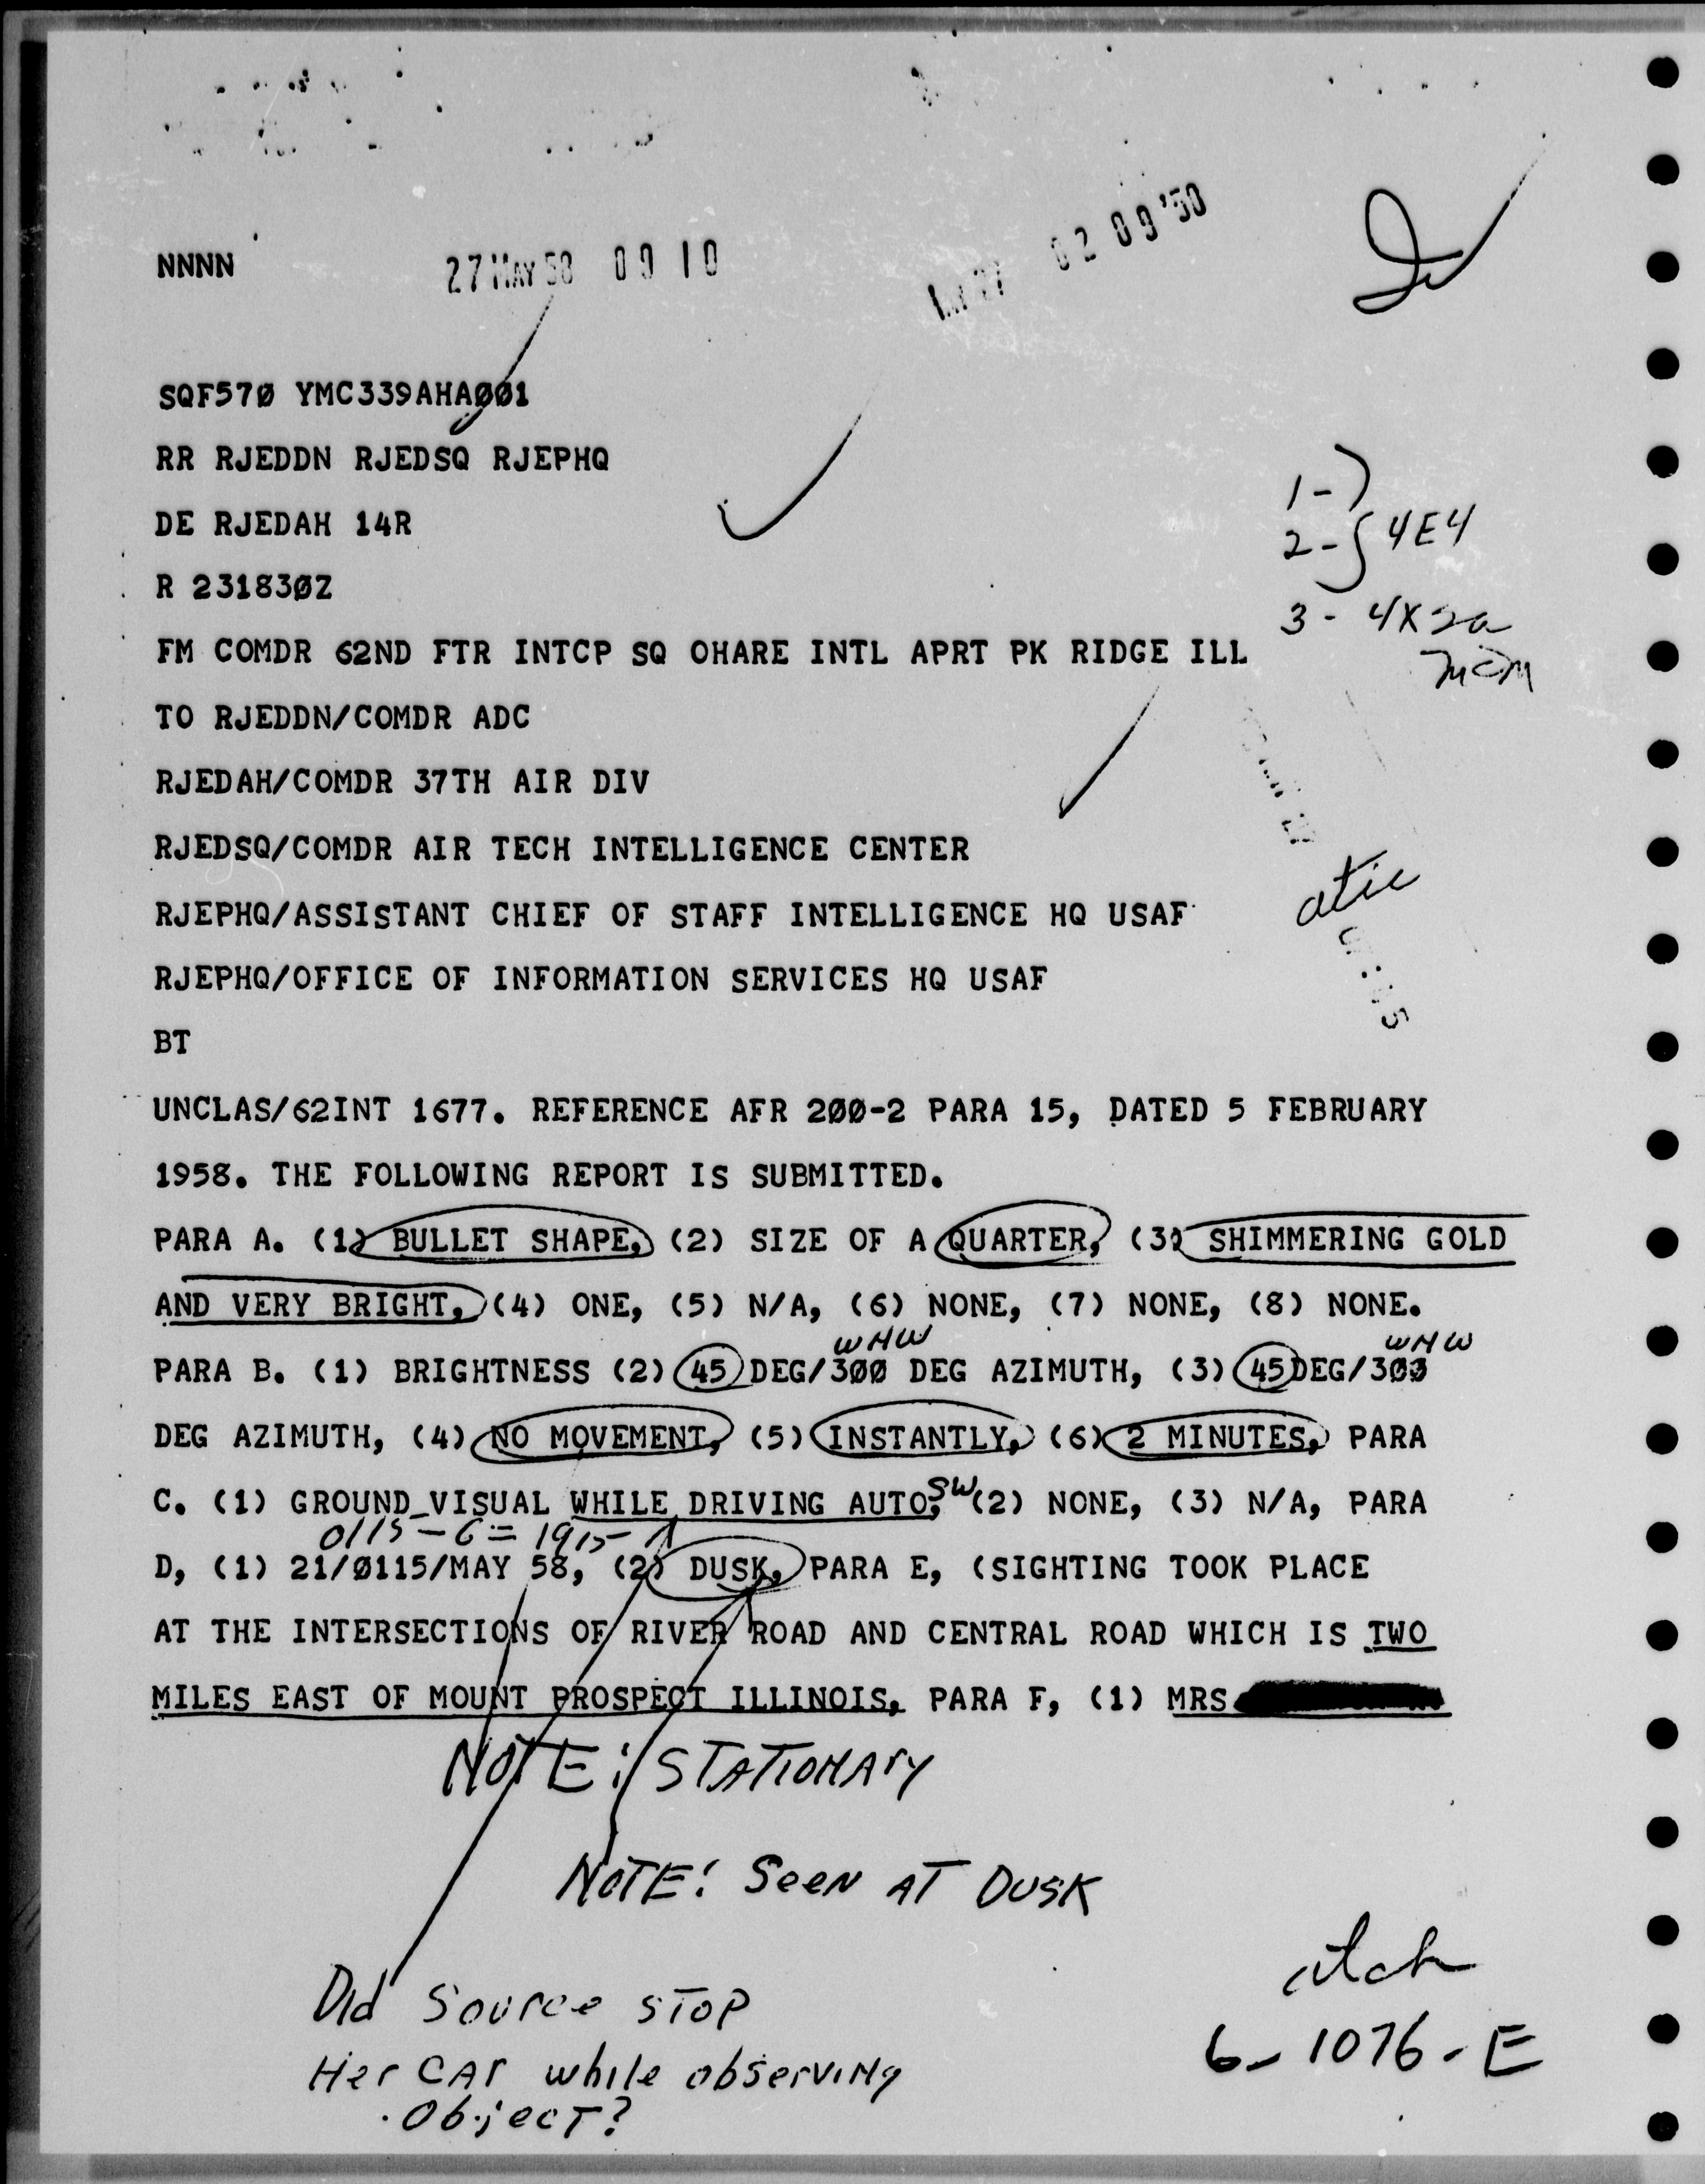 NNNN
27 MAY 58 09 10
02 09 '58
SQF57Ø YMC339AHAØØ1
RR RJEDDN RJEDSQ RJEPHQ
DE RJEDAH 14R
R 23183ØZ
1-
2- } 4E4
3 - 4X2a
FM COMDR 62ND FTR INTCP SQ OHARE INTL APRT PK RIDGE ILL
TO RJEDDN/COMDR ADC
RJEDAH/COMDR 37TH AIR DIV
RJEDSQ/COMDR AIR TECH INTELLIGENCE CENTER
atic
RJEPHQ/ASSISTANT CHIEF OF STAFF INTELLIGENCE HQ USAF
RJEPHQ/OFFICE OF INFORMATION SERVICES HQ USAF
BT
UNCLAS/62INT 1677. REFERENCE AFR 2ØØ-2 PARA 15, DATED 5 FEBRUARY
1958. THE FOLLOWING REPORT IS SUBMITTED.
PARA A. (1) BULLET SHAPE, (2) SIZE OF A QUARTER, (3) SHIMMERING GOLD
AND VERY BRIGHT, (4) ONE, (5) N/A, (6) NONE, (7) NONE, (8) NONE.
WNW WNW
PARA B. (1) BRIGHTNESS (2) 45 DEG/3ØØ DEG AZIMUTH, (3) 45DEG/3Ø3
DEG AZIMUTH, (4) NO MOVEMENT, (5) INSTANTLY, (6) 2 MINUTES, PARA
C. (1) GROUND_VISUAL WHILE DRIVING AUTO, SW (2) NONE, (3) N/A, PARA
0115 - 6 = 1915
D, (1) 21/Ø115/MAY 58, (2) DUSK, PARA E, (SIGHTING TOOK PLACE
AT THE INTERSECTIONS OF RIVER ROAD AND CENTRAL ROAD WHICH IS TWO
MILES EAST OF MOUNT PROSPECT ILLINOIS, PARA F, (1) MRS
NOTE: STATIONARY
NOTE! SEEN AT DUSK
Did Source STOP
Her CAr while observing
Object?
6-1076-E